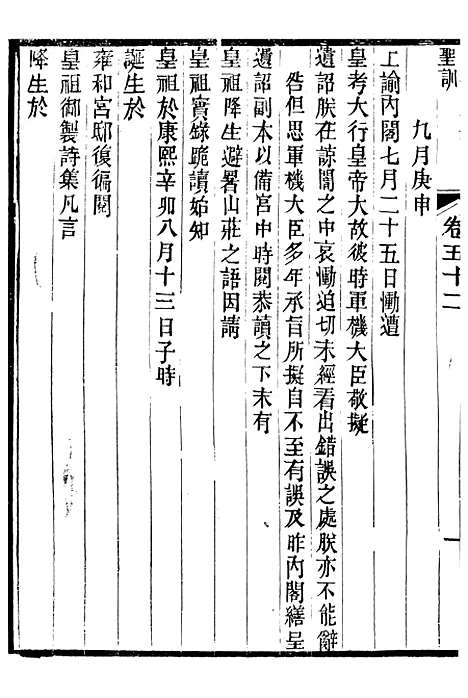 聖訓
卷五十二
一
九月庚申
上諭內閣七月二十五日慟遭
皇考大行皇帝大故彼時軍機大臣敬擬
遺詔朕在諒闇之中哀慟迫切未經看出錯誤之處朕亦不能辭
咎但思軍機大臣多年承旨所擬自不至有誤及昨內閣繕呈
遺詔副本以備宮中時閱恭讀之下末有
皇祖降生避暑山莊之語因請
皇祖實錄跪讀始知
皇祖於康熙辛卯八月十三日子時
誕生於
雍和宮邸復徧閱
皇祖御製詩集凡言
降生於